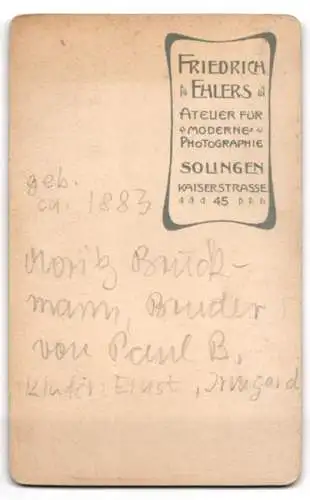 FRIEDRICH
EHLERS
ATELIER FÜR
MODERNE
PHOTOGRAPHIE
SOLINGEN
KAISERSTRASSE
45
geb.
ca. 1883
Moritz Bruck-
mann, Bruder
von Paul B.
Kinder: Ernst, Irmgard